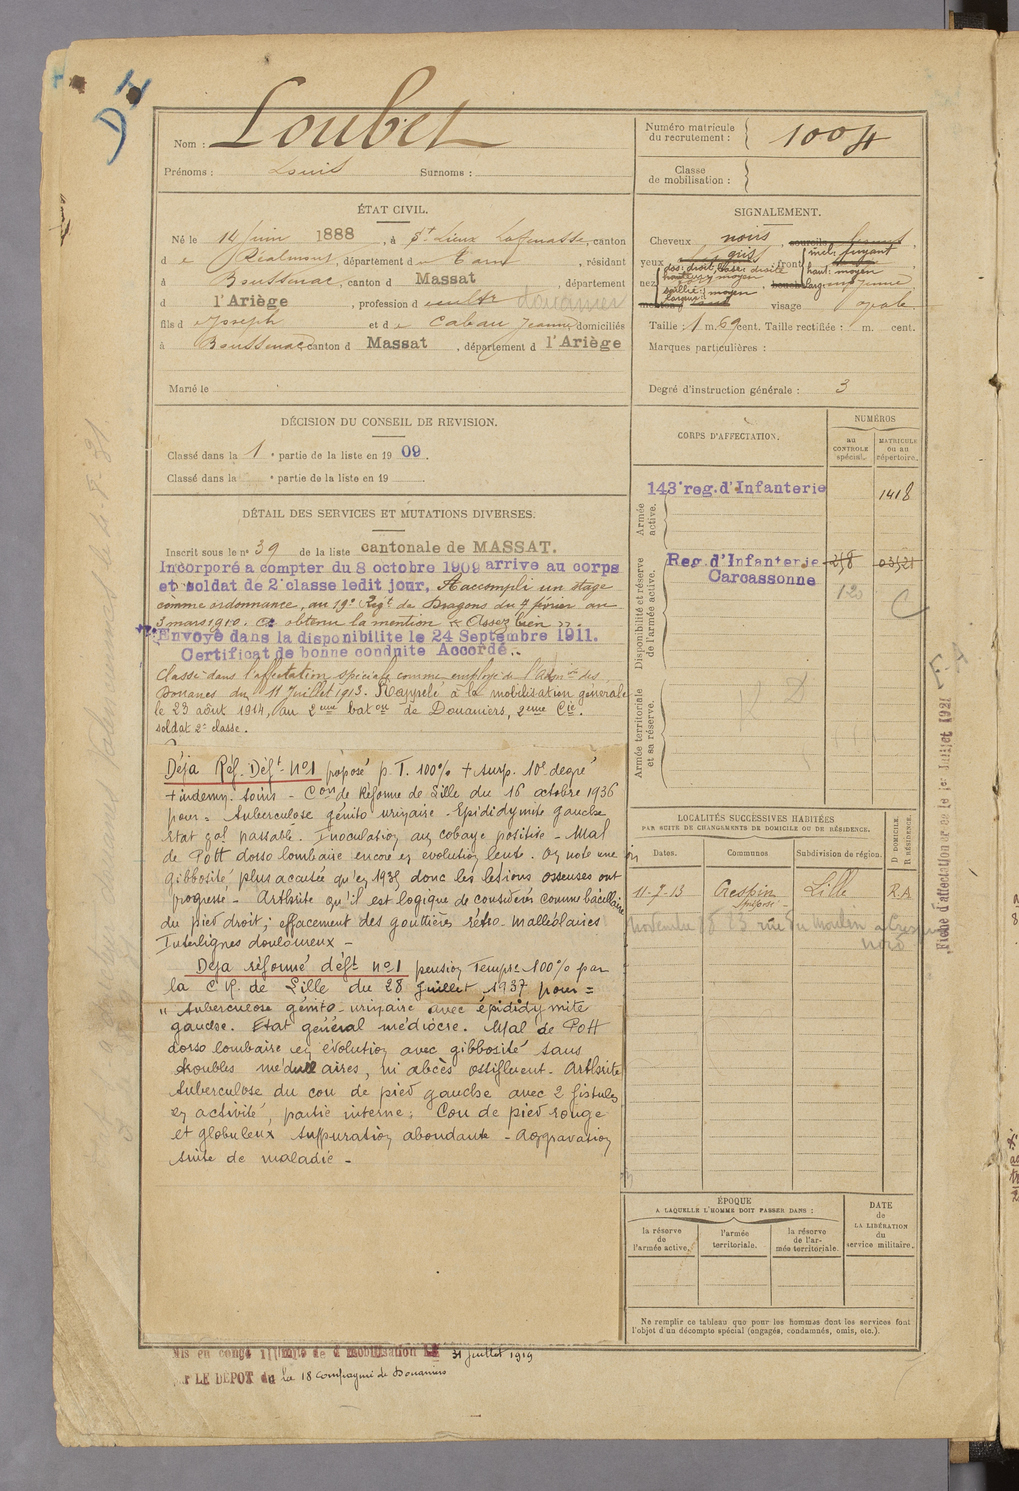 DH
Nom : Loubet
Prénoms : Louis Surnoms :
Numéro matricule du recrutement : 1004
Classe de mobilisation :
ÉTAT CIVIL.
Né le 14 Juin 1888, à St Lieux Lafenasse, canton
de Réalmont, département du Tarn, résidant
à Boussenac, canton d Massat, département
d l'Ariège, profession de cultr douanes
fils de Joseph et de Cabau Jeanne, domiciliés
à Boussenac canton d Massat, département d l'Ariège
Marié le
SIGNALEMENT.
Cheveux noirs, sourcils
yeux gris, front incl: fuyant
haut: moyen
nez dos: droit, base: droite
hauteur: moyen
saillie: moyen
largeur:
larg: moyenne
menton visage ovale
Taille : 1 m. 69 cent. Taille rectifiée : m. cent.
Marques particulières :
Degré d'instruction générale : 3
DÉCISION DU CONSEIL DE REVISION.
Classé dans la 1e partie de la liste en 1909.
Classé dans la e partie de la liste en 19 .
DÉTAIL DES SERVICES ET MUTATIONS DIVERSES.
Inscrit sous le n° 39 de la liste cantonale de MASSAT.
Incorporé a compter du 8 octobre 1909 arrive au corps
et soldat de 2e classe ledit jour, A accompli un stage
comme ordonnance, au 19e Régt de Dragons du 7 février au
3 mars 1910. a obtenu la mention « Assez bien ».
Envoyé dans la disponibilite le 24 Septembre 1911.
Certificat de bonne conduite Accordé..
Classé dans l'affectation spéciale comme employé de l'Admon des
Douanes du 11 Juillet 1913. Rappelé à la mobilisation générale
le 23 août 1914, au 2eme baton de Douaniers, 2eme Cie.
soldat 2e classe.
Déja Réf. Déft n°1 proposé p. T. 100% + surp. 10e degré
+ indemn. soins - Con de Réforme de Lille du 16 octobre 1936
pour = Tuberculose génito urinaire. Epididymite gauche
Etat gal passable. Inoculation au cobaye positive - Mal
de Pott dorso lombaire encore en evolution lente. On note une
gibbosité, plus acusée qu'en 1935 donc les lésions osseuses ont
progressé - Arthrite qu'il est logique de considérer comme bacillaire
du pied droit ; effacement des gouttières rétro-malléolaires
Interlignes douloureux -
Déja réformé déft n°1 pension Tempre 100% par
la C.R. de Lille du 28 Juillet 1937 pour =
" Tuberculose génito-urinaire avec épididymite
gauche. Etat général médiocre. Mal de Pott
dorso lombaire en évolution avec gibbosité sans
troubles médullaires, ni abcès ossifluent - Arthrite
tuberculose du cou de pied gauche avec 2 fistules
en activité, partie interne ; Cou de pied rouge
et globuleux suppuration abondante - Aggravation
suite de maladie -
Mis en congé illimité de démobilisation le 31 Juillet 1919
LE DEPOT du la 18 compagnie de Douaniers
CORPS D'AFFECTATION.
NUMÉROS
au CONTROLE spécial.
MATRICULE ou au répertoire.
Armée active.
143e reg. d'Infanterie 1418
Disponibilité et réserve de l'armée active.
Reg. d'Infanterie 258 03521
Carcassonne
120
Armée territoriale et sa réserve.
LOCALITÉS SUCCESSIVES HABITÉES
PAR SUITE DE CHANGEMENTS DE DOMICILE OU DE RÉSIDENCE.
Dates. Communes Subdivision de région. D DOMICILE. R RÉSIDENCE.
11-7-13 Crespin Lille RA
Novembre 23 rue du Moulin à Crespin
nord
Fiche d'affectation créée le 1er Juillet 1921
ÉPOQUE
A LAQUELLE L'HOMME DOIT PASSER DANS :
la réserve de l'armée active.
l'armée territoriale.
la réserve de l'armée territoriale.
DATE de LA LIBÉRATION du service militaire.
Ne remplir ce tableau que pour les hommes dont les services font
l'objet d'un décompte spécial (engagés, condamnés, omis, etc.).